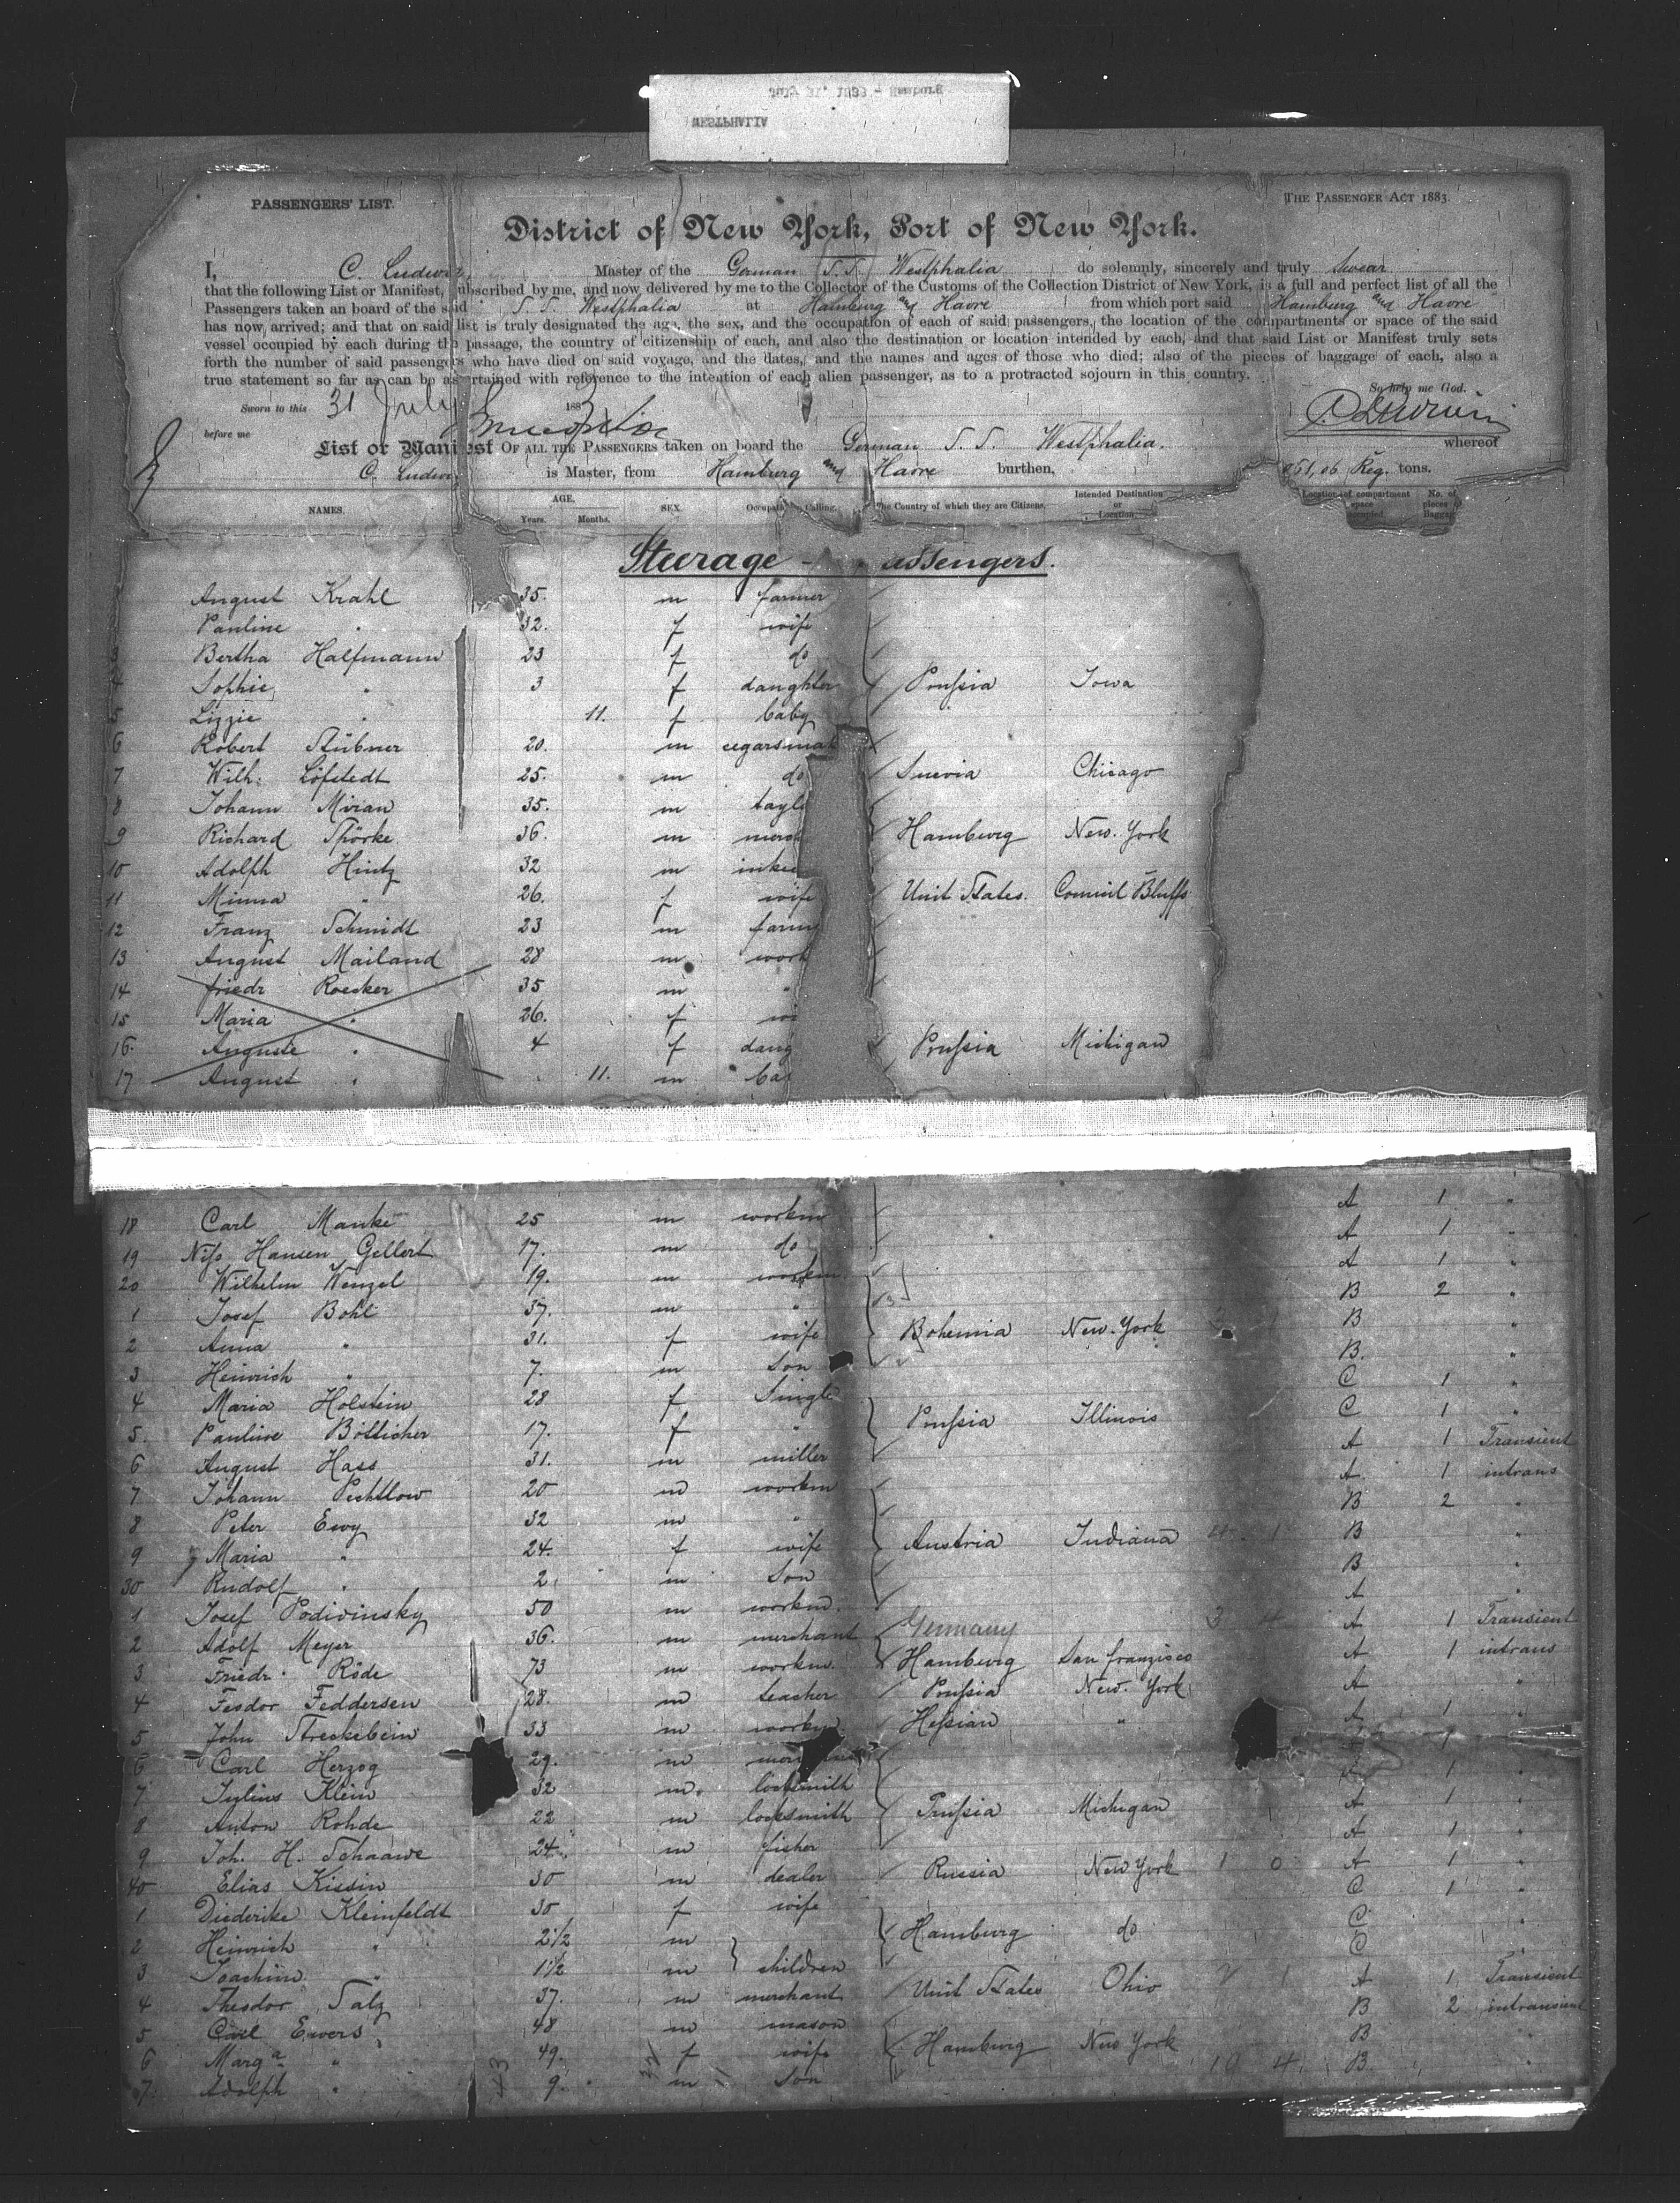 WESTPHALIA
PASSENGERS' LIST.
THE PASSENGER ACT 1883.
District of New York, Port of New York.
I, C. Ludwig, Master of the German S.S. Westphalia do solemnly, sincerely and truly swear
that the following List or Manifest, subscribed by me, and now delivered by me to the Collector of the Customs of the Collection District of New York, is a full and perfect list of all the
Passengers taken on board of the said S. S. Westphalia at Hamburg and Havre from which port said Hamburg and Havre
has now arrived; and that on said list is truly designated the age, the sex, and the occupation of each of said passengers, the location of the compartments or space of the said
vessel occupied by each during the passage, the country of citizenship of each, and also the destination or location intended by each, and that said List or Manifest truly sets
forth the number of said passengers who have died on said voyage, and the dates, and the names and ages of those who died; also of the pieces of baggage of each, also a
true statement so far as can be ascertained with reference to the intention of each alien passenger, as to a protracted sojourn in this country.
So help me God.
Sworn to this 31 July 1883
before me
List or Manifest OF ALL THE PASSENGERS taken on board the German S. S. Westphalia. whereof
C. Ludwig is Master, from Hamburg and Havre burthen, 61,06 Reg. tons.
NAMES. AGE. Years. Months. SEX. Occupation Calling. The Country of which they are Citizens. Intended Destination or Location. Location of compartment space occupied No. of pieces of Baggage
Steerage - assengers.
August Krahl 35. m farmer
Pauline " 32. f wife
Bertha Halfmann 23 f do
4 Sophie " 3 f daughter Prussia Iowa
5 Lizzie " 11. f baby
6 Robert Stübner 20. m cegarsmak
7 Wilh: Löfstedt 25. m do Suevia Chicago
8 Johann Miran 35. m tayl
9 Richard Spörke 36. m merch Hamburg New. York
10 Adolph Hintz 32 m inkee
11 Minna " 26. f wife Unit States. Council Bluffs
12 Franz Schmidt 23 m farm
13 August Mailand 28 m work
14 Friedr Roecker 35 m "
15 Maria " 26. f wi
16. Auguste " 4 f daug Prussia Michigan
17 August " 11. m ba
18 Carl Manke 25 m workm A 1 "
19 Nifs Hansen Gellert 17. m do A 1 "
20 Wilhelm Wenzel 19. m workm A 1 "
1 Josef Bohl 37. m " B 2 "
2 Anna " 31. f wife Bohemia New. York B "
3 Heinrich " 7. m Son B "
4 Maria Holstein 28 f Single C 1 "
5. Pauline Bötticher 17. f " Prussia Illinois C 1 "
6 August Hass 31. m miller A 1 Transient
7 Johann Pechtlow 20 m workm A 1 intrans
8 Peter Ewy 32 m " B 2 "
9 Maria " 24. f wife Austria Indiana B "
30 Rudolf " 2 m Son B "
1 Josef Podivinsky 50 m workm. A "
2 Adolf Meyer 36. m merchant Germany Hamburg San Franzisco A 1 Transient
3 Friedr. Röde 73 m workm. A 1 intrans
4 Feodor Feddersen 28. m teacher Prussia New. York A "
5 John Streckebein 33 m workm. Hessian " A 1 "
6 Carl Herzog 29. m 1
7 Julius Klein 32 m. locksmith A 1 "
8 Anton Rohde 22 m locksmith Prussia Michigan A 1 "
9 Joh. H. Schaawe 24 m fisher A 1 "
40 Elias Kissin 30 m dealer Russia New York 1 0 A 1 "
1 Diederike Kleinfeldt 30 f wife C 1 "
2 Heinrich " 2 1/2 m Hamburg do C "
3 Joachim " 1 1/2 m children C "
4 Theodor Salz 37. m merchant Unit States Ohio A 1 Transient
5 Carl Ewers 48 m mason B 2 intransient
6 Marga " 49. f wife Hamburg New York B "
7. Adolph " 9. m Son 10 4 B. "